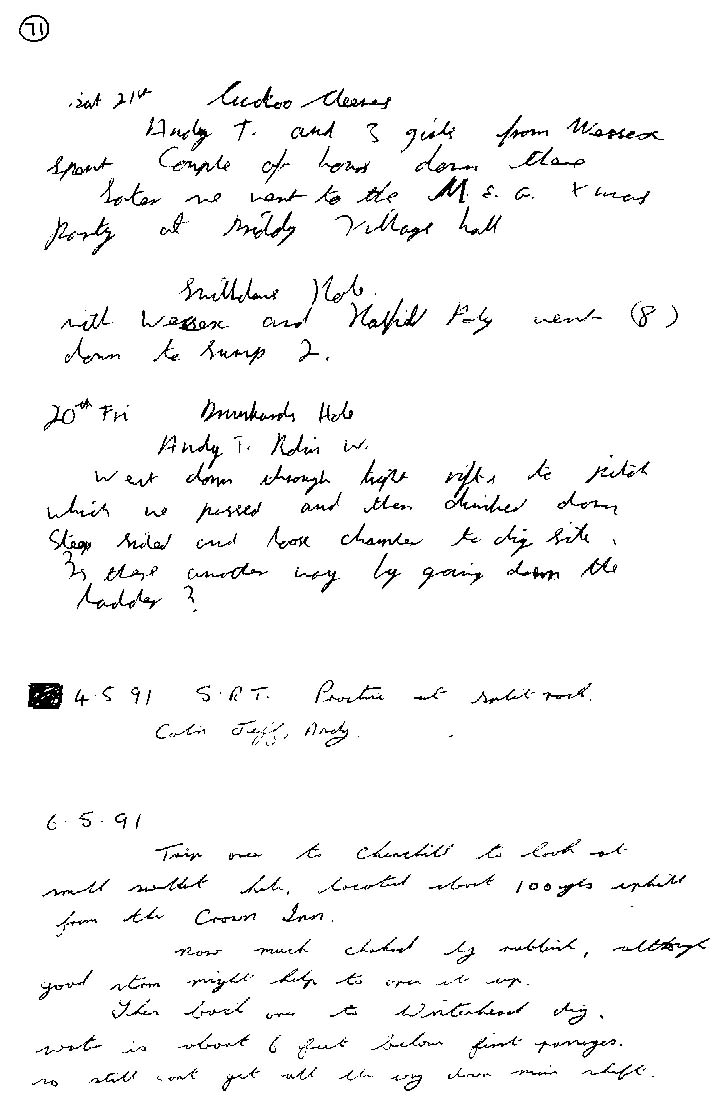 71
Sat 21st Cuckoo Cleeves
Andy T. and 3 girls from Wessex
spent Couple of hours down there
Later we went to the M.E.G. Xmas
Party at Priddy Village hall
Swildons Hole.
with Wessex and Hatfield Poly went (8)
down to Sump 2.
20th Fri Hole
Andy T. Robin W.
Went down through tight rifts to pitch
which we passed and then climbed down
Steep sided and loose chamber to dig site.
Is there another way by going down the
ladder?
4.5.91 S.R.T. Practice at split rock.
Colin Jeff, Andy.
6.5.91
Trip over to Churchill to look at
small swallet hole, located about 100yds uphill
from the Crown Inn.
Now much choked by rubbish, although
good storm might help to open it up.
Then back over to Winterhead dig,
water is about 6 feet below first passages.
so still cant get all the way down main shaft.